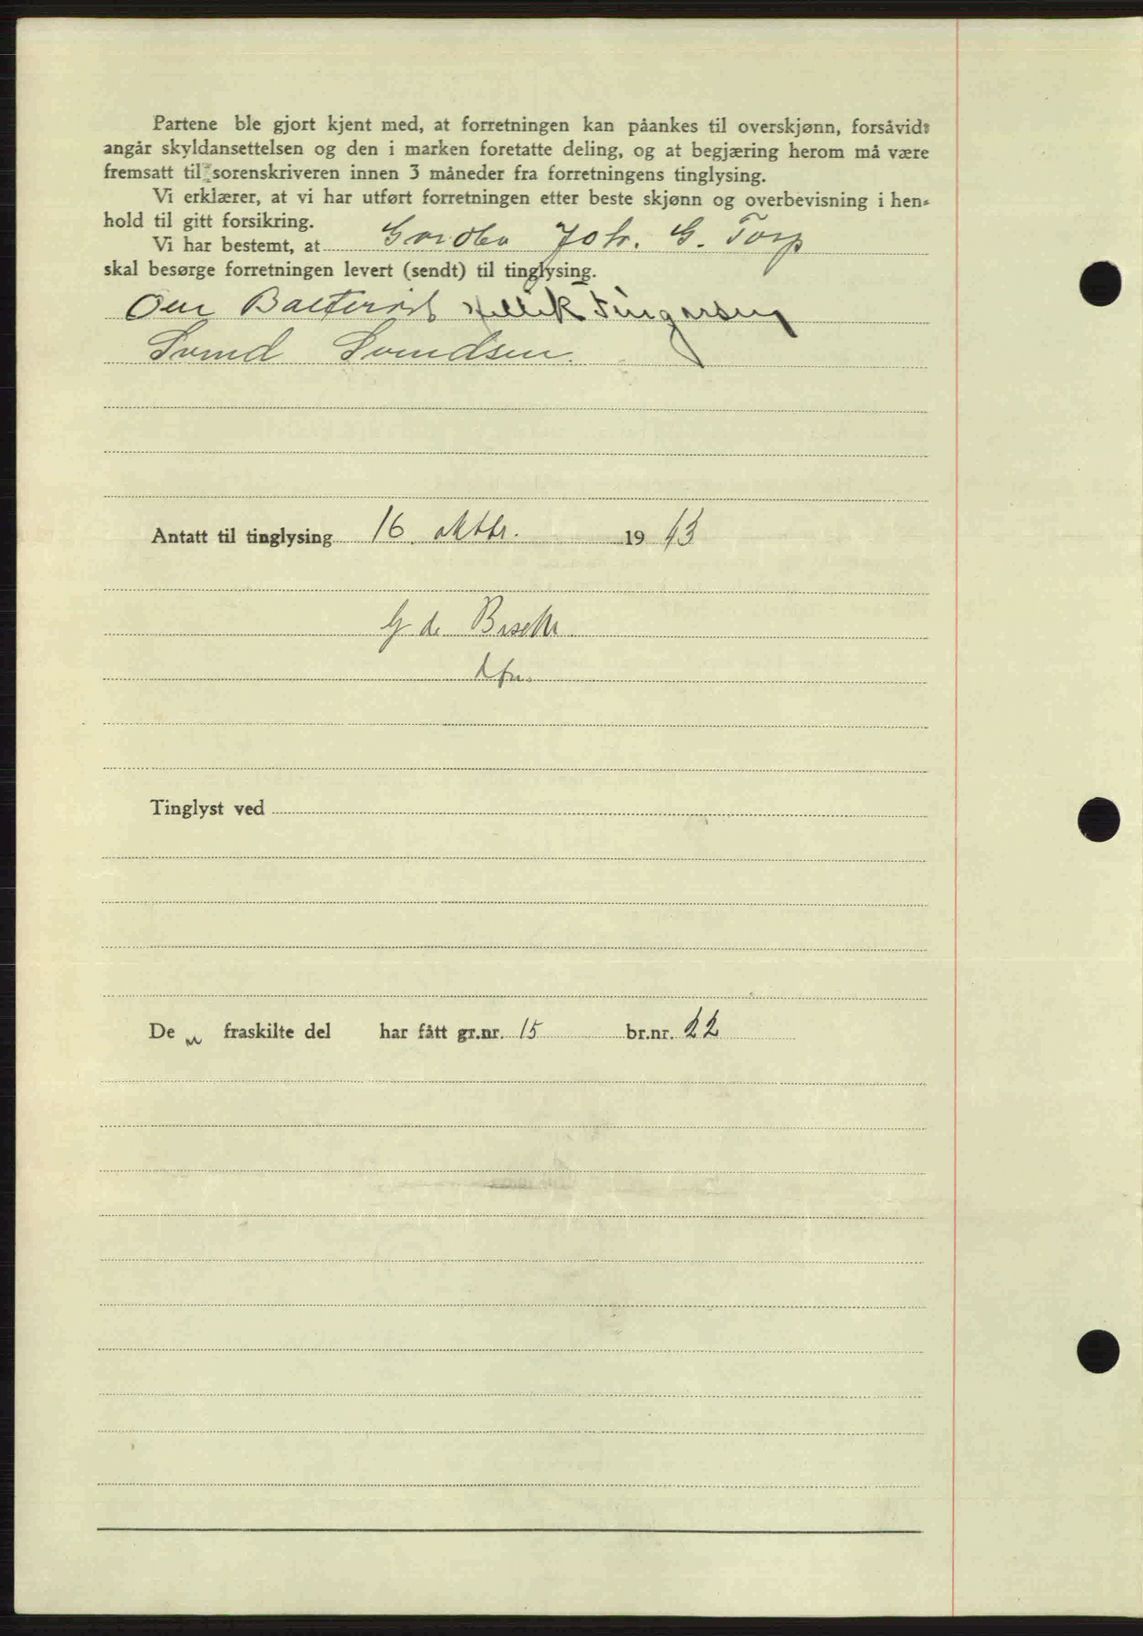 Partene ble gjort kjent med, at forretningen kan påankes til overskjønn, forsåvidt
angår skyldansettelsen og den i marken foretatte deling, og at begjæring herom må være
fremsatt til sorenskriveren innen 3 måneder fra forretningens tinglysing.
Vi erklærer, at vi har utført forretningen etter beste skjønn og overbevisning i hen-
hold til gitt forsikring.
Vi har bestemt, at Joh. G. Torp
skal besørge forretningen levert (sendt) til tinglysing.
Svend Svendsen
Antatt til tinglysing 16. oktbr. 1943
G de
Tinglyst ved
De n fraskilte del har fått gr.nr. 15 br.nr. 22